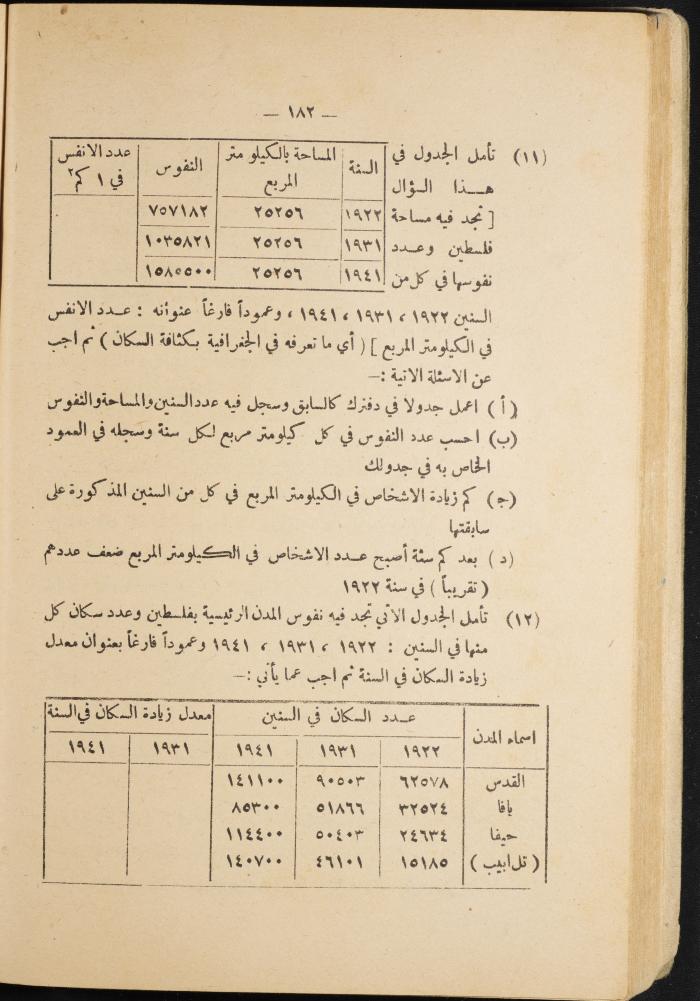 — ١٨٢ —
(١١) تأمل الجدول في
هـــذا السؤال
[ تجد فيه مساحة
فلسطين وعــدد
نفوسها في كل من
السنة | المساحة بالكيلو متر المربع | النفوس | عدد الانفس في ١ كم٢
١٩٢٢ | ٢٥٢٥٦ | ٧٥٧١٨٢
١٩٣١ | ٢٥٢٥٦ | ١٠٣٥٨٢١
١٩٤١ | ٢٥٢٥٦ | ١٥٨٥٥٠٠
السنين ١٩٢٢ ، ١٩٣١ ، ١٩٤١ ، وعموداً فارغاً عنوانه : عــدد الانفس
في الكيلومتر المربع ] ( أي ما تعرفه في الجغرافية بكثافة السكان ) ثم اجب
عن الاسئلة الاتية :—
( أ ) اعمل جدولا في دفترك كالسابق وسجل فيه عدد السنين والمساحة والنفوس
(ب) احسب عدد النفوس في كل كيلومتر مربع لكل سنة وسجله في العمود
الخاص به في جدولك
(ج) كم زيادة الاشخاص في الكيلومتر المربع في كل من السنين المذكورة على
سابقتها
(د) بعد كم سنة أصبح عــدد الاشخاص في الكيلومتر المربع ضعف عددهم
( تقريباً ) في سنة ١٩٢٢
(١٢) تأمل الجدول الاتي تجد فيه نفوس المدن الرئيسية بفلسطين وعدد سكان كل
منها في السنين : ١٩٢٢ ، ١٩٣١ ، ١٩٤١ وعموداً فارغاً بعنوان معدل
زيادة السكان في السنة ثم اجب عما يأتي :—
اسماء المدن | عــدد السكان في السنين | معدل زيادة السكان في السنة
١٩٢٢ | ١٩٣١ | ١٩٤١ | ١٩٣١ | ١٩٤١
القدس | ٦٢٥٧٨ | ٩٠٥٠٣ | ١٤١١٠٠
يافا | ٣٢٥٢٤ | ٥١٨٦٦ | ٨٥٣٠٠
حيفا | ٢٤٦٣٤ | ٥٠٤٠٣ | ١١٤٤٠٠
( تل ابيب ) | ١٥١٨٥ | ٤٦١٠١ | ١٤٠٧٠٠